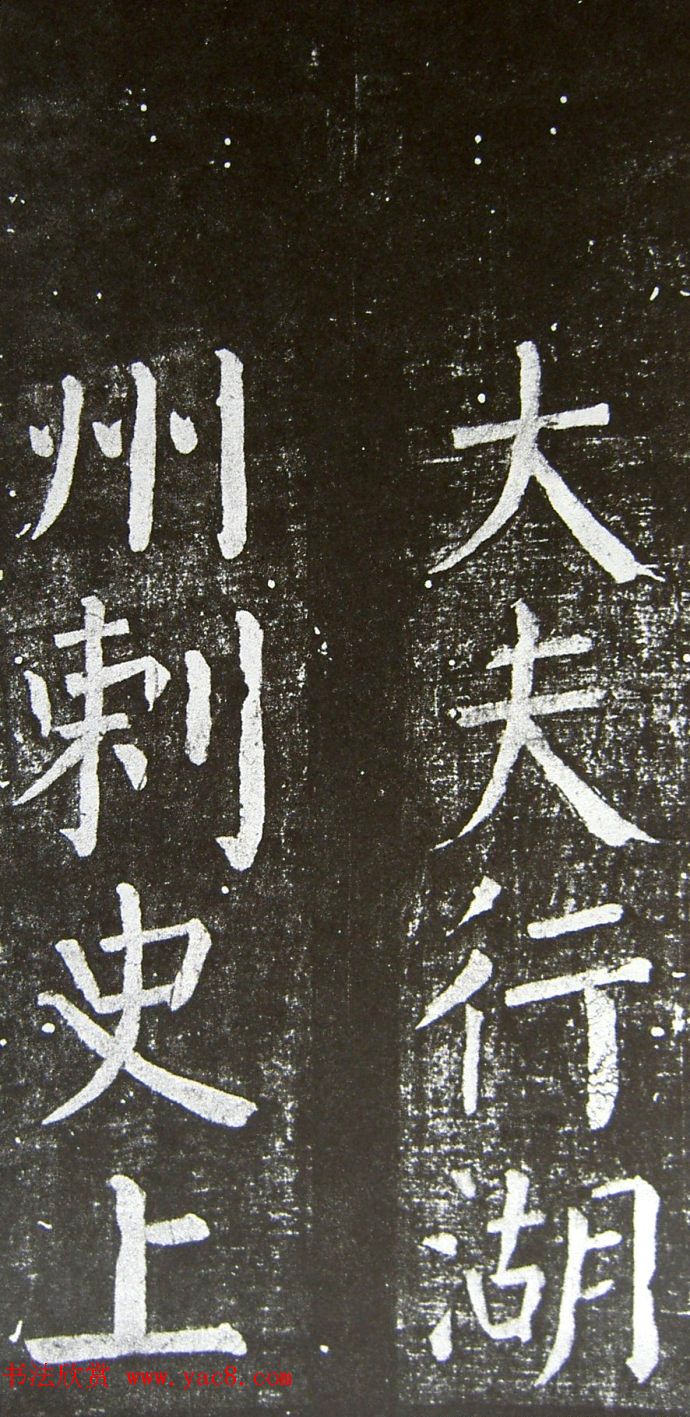 大夫行湖
州刺史上
书法欣赏 www.yac8.com